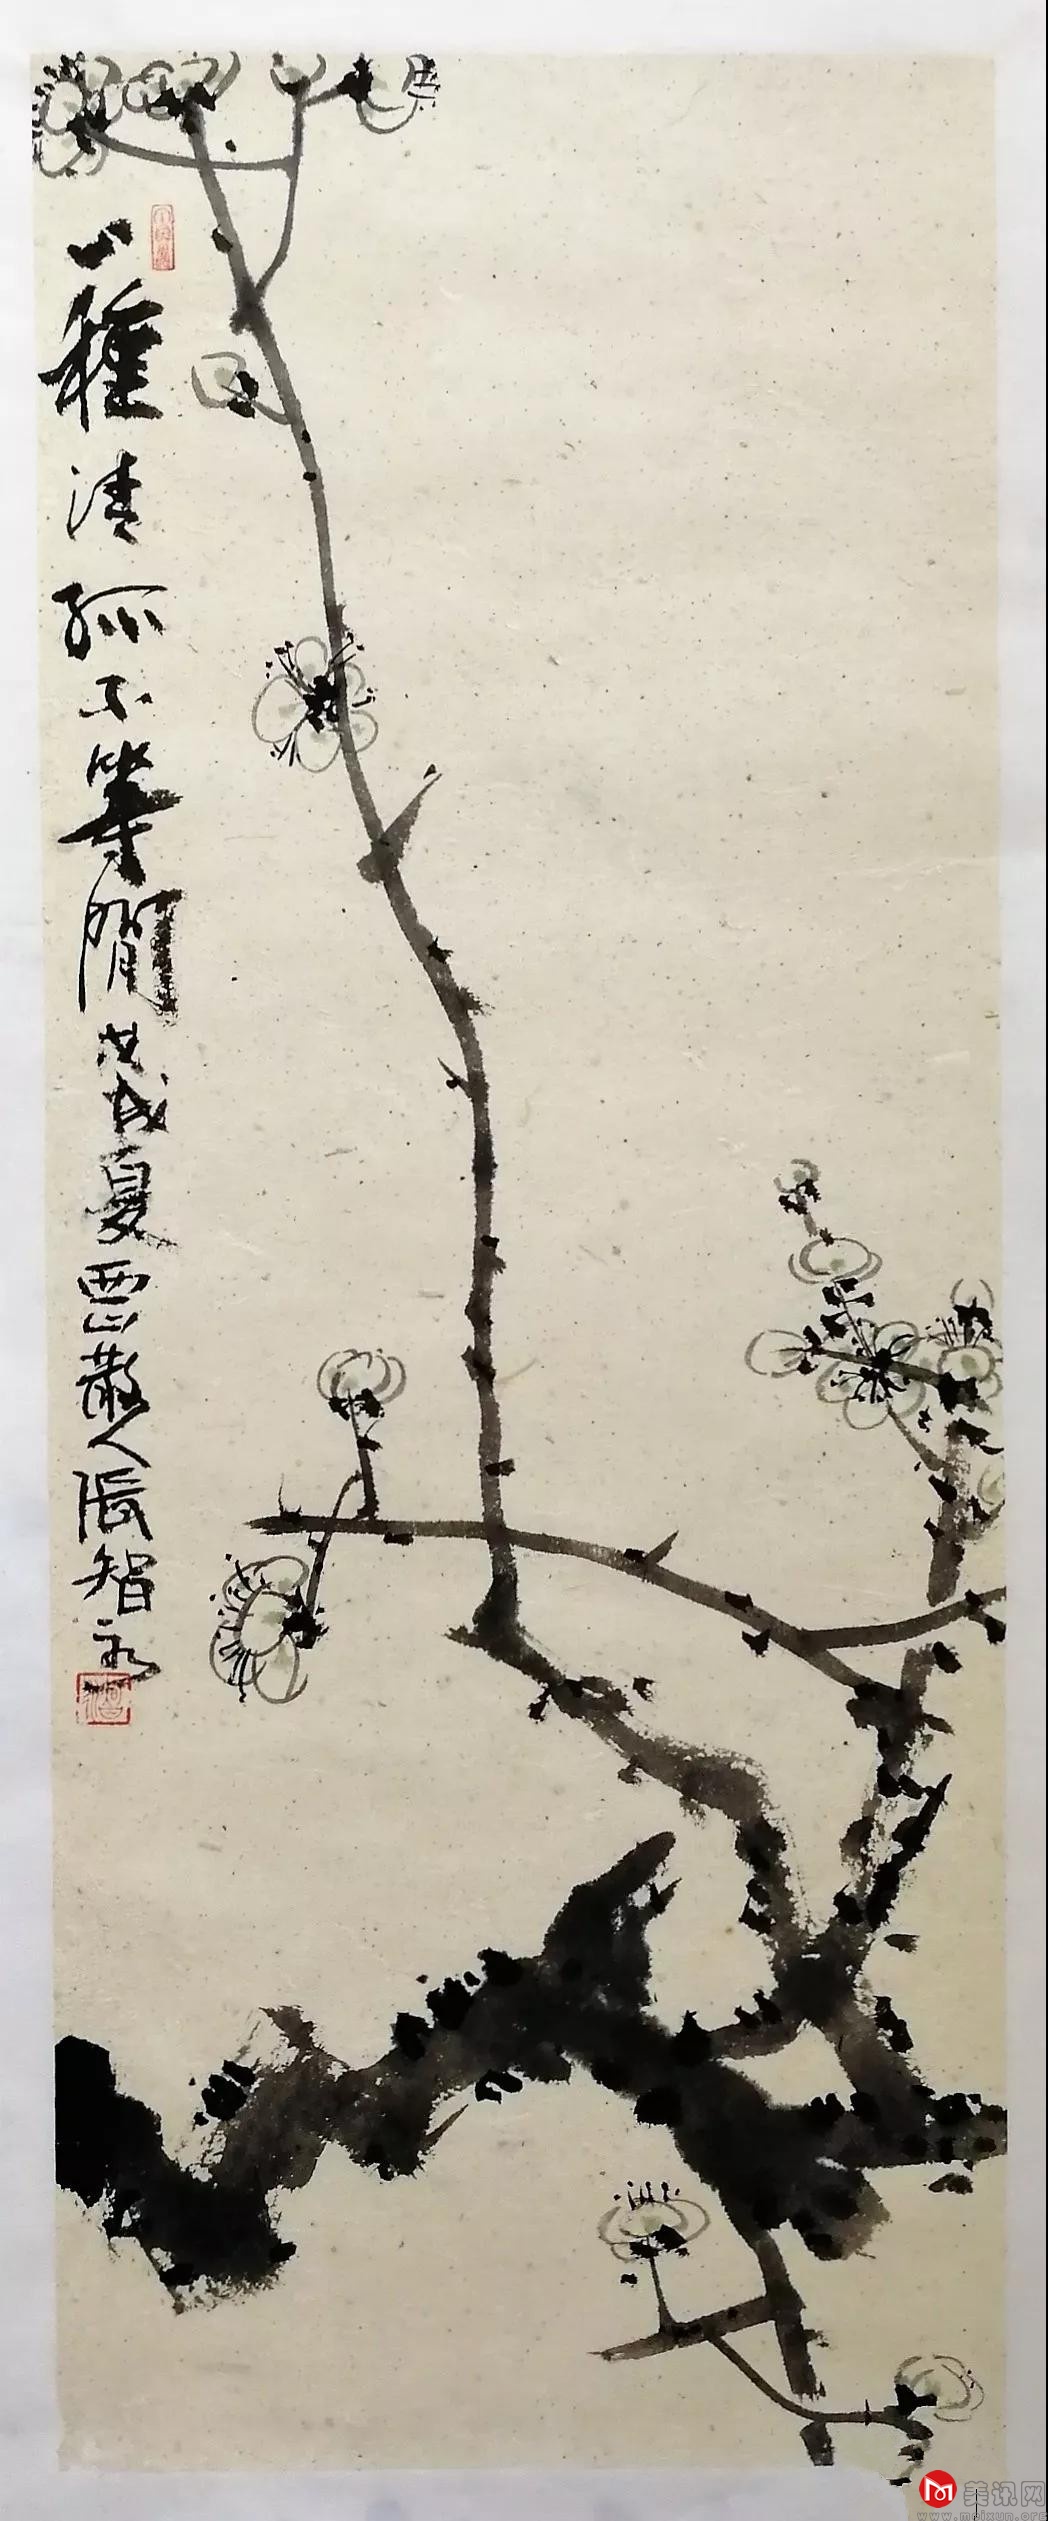 一種清孤不等閒戊戌夏西山散人張智永
美讯网
www.meixun.org